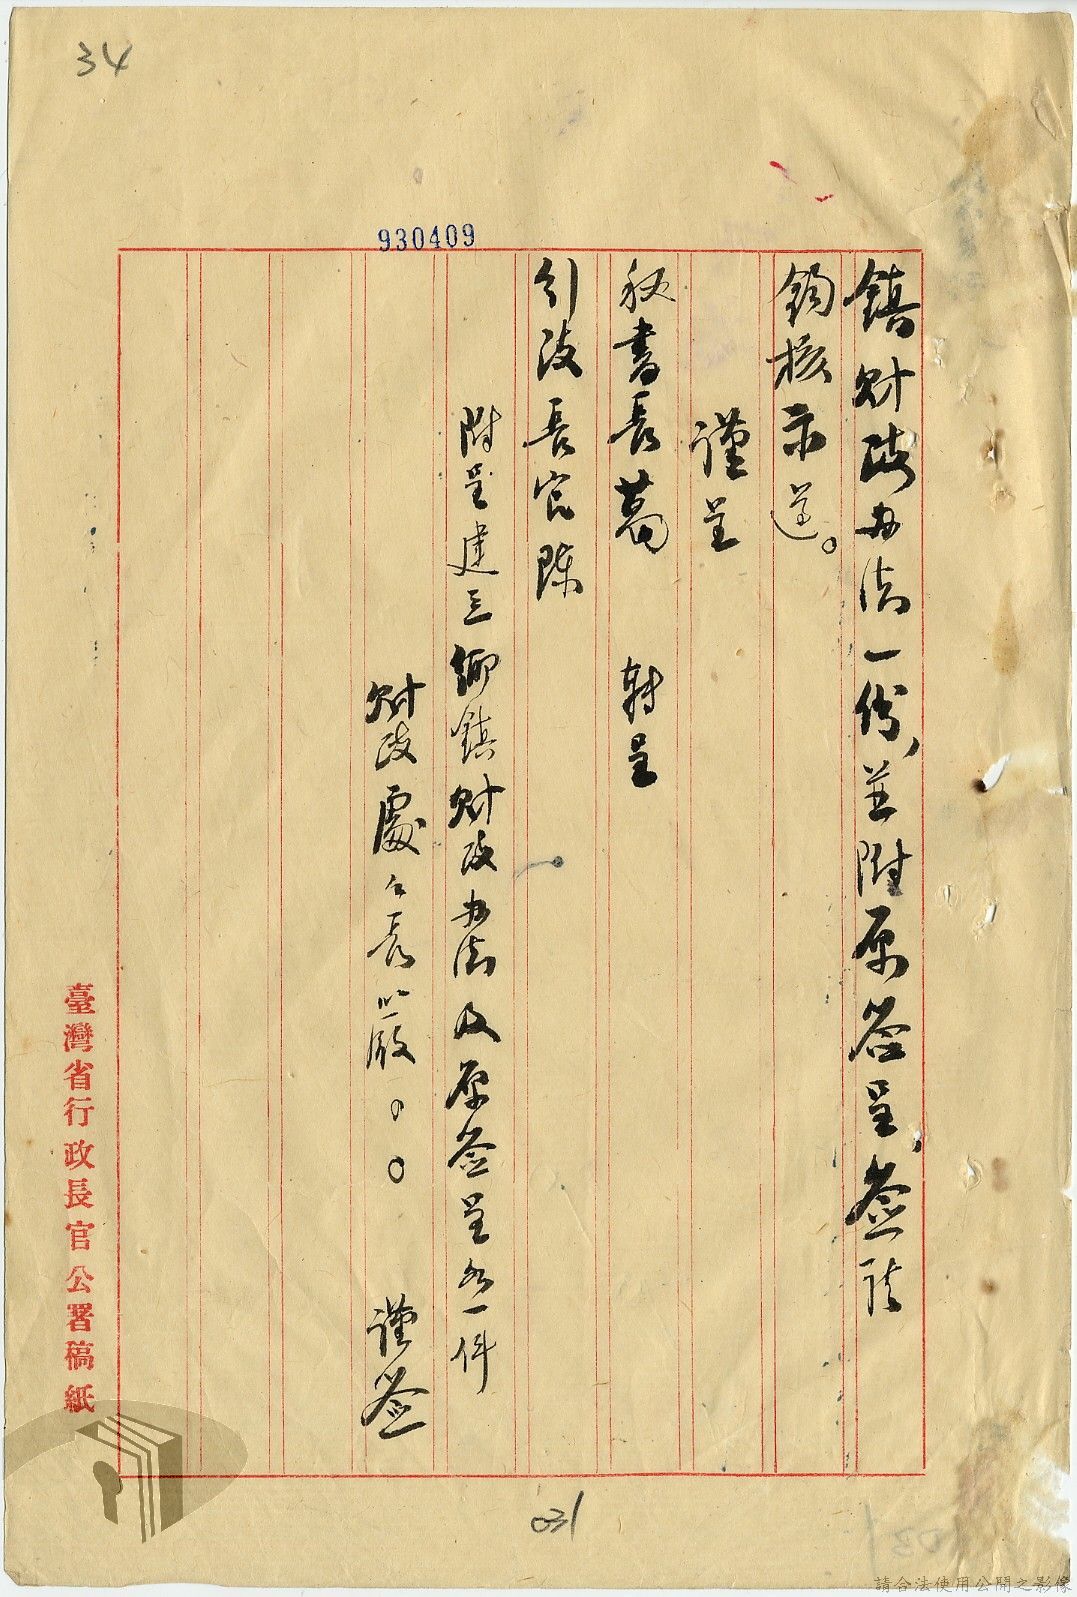 34
930409
鎮財政办法一份，並附原签呈，签請
鈞核示遵。
謹呈
秘書長葛 轉呈
行政長官陳
附呈建立鄉鎮財政办法及原签呈各一件
財政處處長嚴〇〇 謹签
臺灣省行政長官公署稿紙
031
請合法使用公開之影像